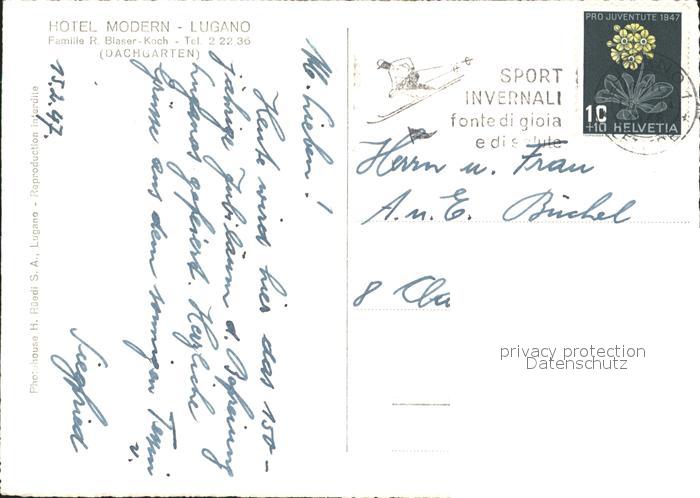 HOTEL MODERN - LUGANO
Familie R. Blaser-Koch - Tel. 2 22 36
(DACHGARTEN)
15.2.47.
M. Lieben!
Heute wird hier das 150-
jährige Jubiläum d. Befreiung
Luganos gefeiert. Herzliche
Grüsse aus dem sonnigen Tessin
v.
Siegfried
Photohouse H. Rüedi S. A., Lugano - Reproduction interdite
SPORT
INVERNALI
fonte di gioia
e di salute
PRO JUVENTUTE 1947
10
+10 HELVETIA
Herrn u. Frau
A. u. E. Büchel
8
privacy protection
Datenschutz